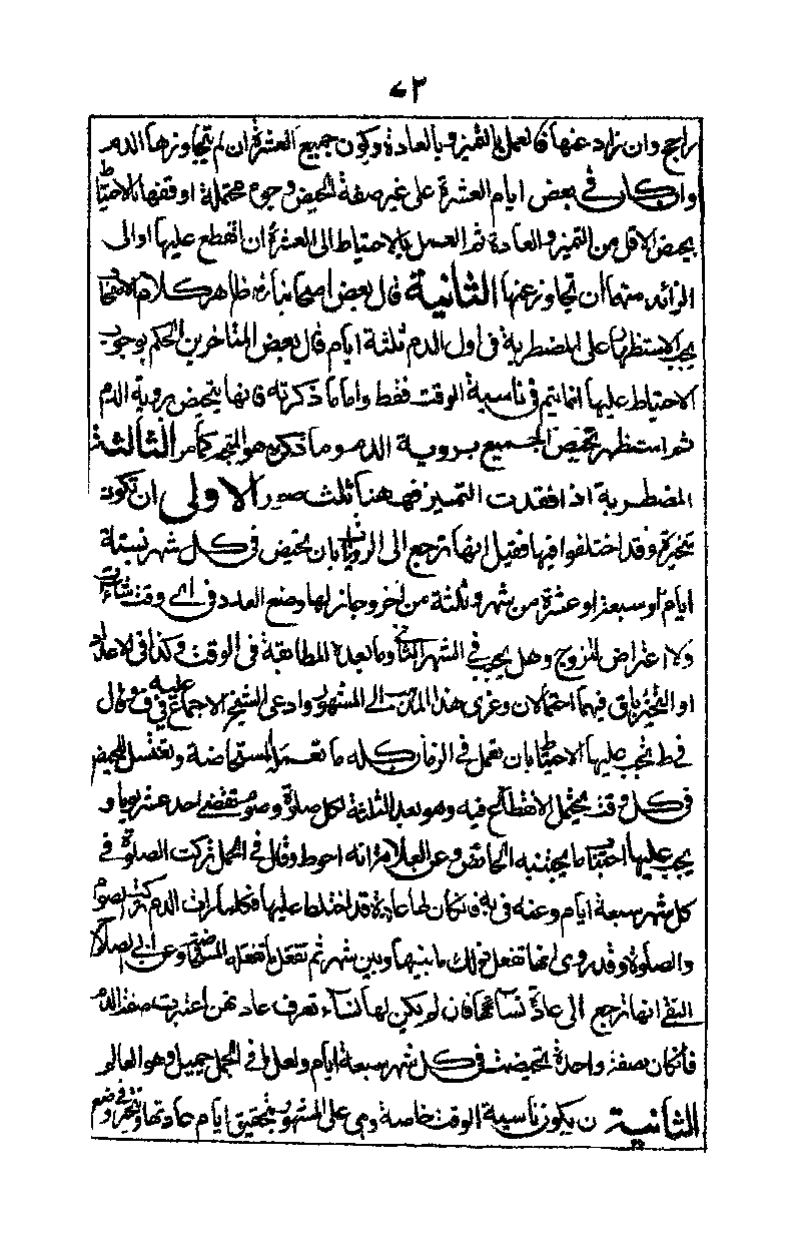 ٧٢
راجح وان زاد عنها فالعمل بالتميز وبالعادة وكون جميع العشرة ان لم يتجاوزها الدم
وان كان في بعض ايام العشرة على غير صفة الحيض وجوه محتملة اوفقها بالاحتياط
يحيض الاقل من التميز والعادة ثم الغسل بالاحتياط الى العشرة ان انقطع عليها او الى
الزائد منهما ان تجاوز عنها الثانية قال بعض اصحابنا ظاهر كلام الاصحاب
يجب الاستظهار على المضطربة في اول الدم ثلثة ايام قال بعض المتاخرين الحكم بوجوب
الاحتياط عليها انما يتم في ناسية الوقت فقط واما ما ذكرته فانها تحيض بروية الدم
ثم استظهر تحيض الجميع بروية الدم وما ذكره هو المتجه كما مر الثالثة
المضطربة اذا فقدت التميز فههنا ثلث صور الاولى ان تكون
متحيرة وقد اختلفوا فيها فقيل انها ترجع الى الروايات بان تحيض في كل شهر بستة
ايام او سبعة او عشرة من شهر وثلثة من اخر وجاز لها وضع العدد في اي وقت شاءت
ولا اعتراض للزوج وهل يجب في الشهر الثاني وما بعده المطابقة في الوقت وكذا في الاعداد
او التخير باق فيهما احتمالان وعزى هذا المذهب الى المشهور وادعى الشيخ الاجماع عليه في ف وقال
في ط يجب عليها الاحتياط بان تعمل في الزمان كله ما تعمله المستحاضة وتغتسل للحيض
في كل وقت يحتمل الانقطاع فيه وهو بعد الثلثة لكل صلوة وصوم وتقضي احد عشر يوما و
يجب عليها اجتناب ما يجتنبه الحائض وعن العلامة انه احوط وقال في الجمل تركت الصلوة في
كل شهر سبعة ايام وعنه في يه فان كان لها عادة قد اختلط عليها فكلما رات الدم تركت الصوم
والصلوة وقد روى انها تفعل ذلك ما بينها وبين شهر ثم تفعل ما تفعله المستحاضة وعن ابي الصلاح
التقي انها ترجع الى عادة نسائها فان لم يكن لها نساء تعرف عادتهن اعتبرت صفة الدم
فان كان بصفة واحدة تحيضت في كل شهر سبعة ايام ولعل ما في الجمل جميل وهو العالم
الثانية ن يكون ناسية الوقت خاصة وهي على المشهور تتحيض ايام عادتها وتتخير في وضع